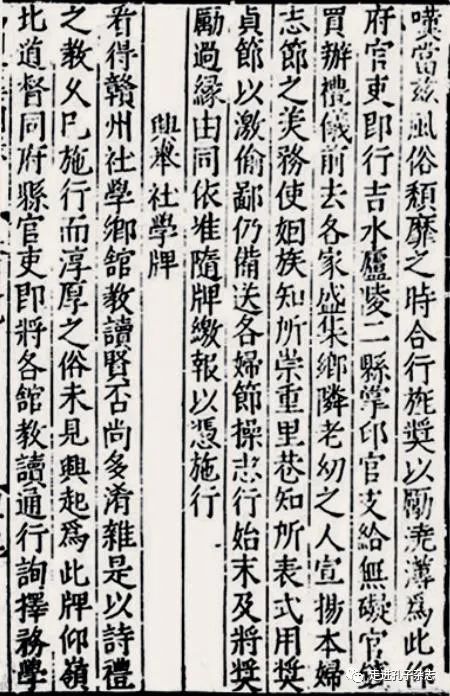 嘆當兹風俗頽靡之時合行旌奬以勵澆薄爲此仰
府官吏即行吉水廬陵二縣掌印官支給無礙官錢
買辦禮儀前去各家盛集鄉隣老幼之人宣揚本婦
志節之美務使姻族知所崇重里巷知所表式用奬
貞節以激偷鄙仍備送各婦節操志行始末及將奬
勵過縁由同依准隨牌繳報以憑施行
興舉社學牌
看得贛州社學鄉舘教讀賢否尚多淆雜是以詩禮
之教久已施行而淳厚之俗未見興起爲此牌仰嶺
北道督同府縣官吏即將各舘教讀通行詢擇務學
走进孔子杂志